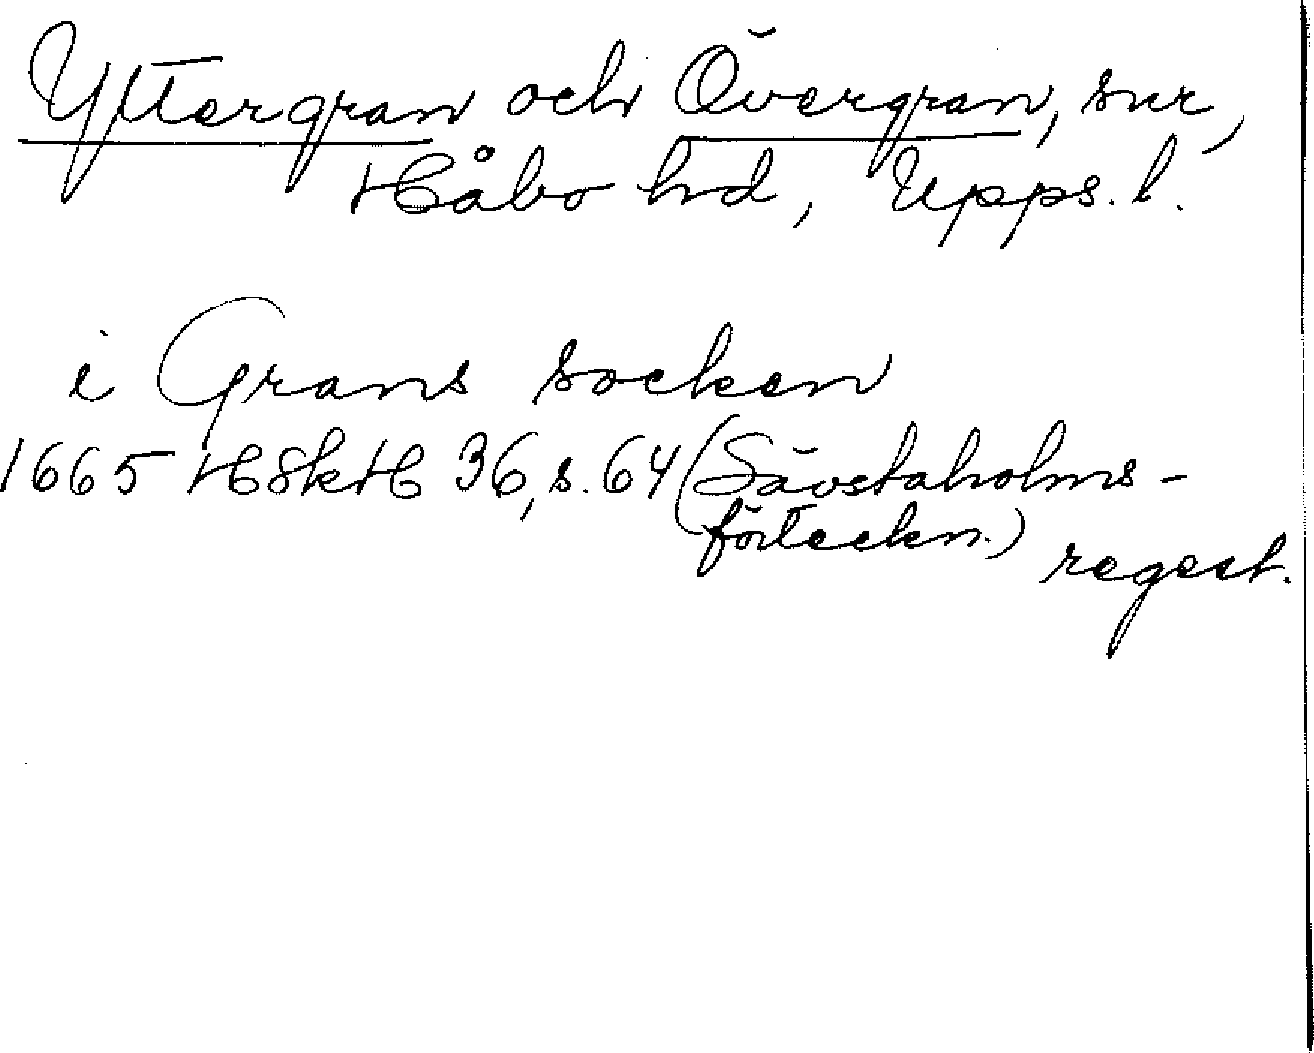 Yttergran och Övergran, snr,
Håbo hd, Upps. l.
i Grans socken
1665 HSkH 36, s. 64 (Sävstaholms-
förteckn.) regest.